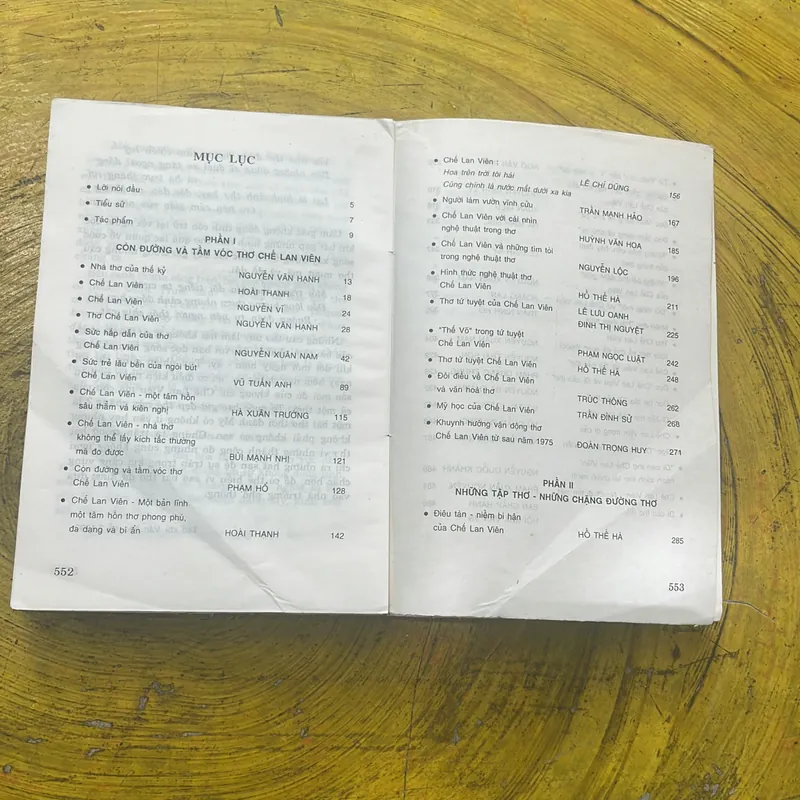 MỤC LỤC
• Lời nói đầu 5
• Tiểu sử 7
• Tác phẩm 9
PHẦN I
CON ĐƯỜNG VÀ TẦM VÓC THƠ CHẾ LAN VIÊN
• Nhà thơ của thế kỷ NGUYỄN VĂN HẠNH 13
• Chế Lan Viên HOÀI THANH 18
• Chế Lan Viên NGUYỄN VĨ 24
• Thơ Chế Lan Viên NGUYỄN VĂN HẠNH 28
• Sức hấp dẫn của thơ
Chế Lan Viên NGUYỄN XUÂN NAM 42
• Sức trẻ lâu bền của ngòi bút
Chế Lan Viên VŨ TUẤN ANH 89
• Chế Lan Viên - một tâm hồn
sâu thẳm và kiên nghị HÀ XUÂN TRƯỜNG 115
• Chế Lan Viên - nhà thơ
không thể lấy kích tấc thường
mà đo được BÙI MẠNH NHỊ 121
• Con đường và tầm vóc thơ
Chế Lan Viên PHẠM HỔ 128
• Chế Lan Viên - Một bản lĩnh
một tâm hồn thơ phong phú,
đa dạng và bí ẩn HOÀI THANH 142
552
• Chế Lan Viên :
Hoa trên trời tôi hái
Cũng chính là nước mắt dưới xa kia LÊ CHÍ DŨNG 156
• Người làm vườn vĩnh cửu TRẦN MẠNH HẢO 167
• Chế Lan Viên với cái nhìn
nghệ thuật trong thơ HUỲNH VĂN HOA 185
• Chế Lan Viên và những tìm tòi
trong nghệ thuật thơ NGUYỄN LỘC 196
• Hình thức nghệ thuật thơ
Chế Lan Viên HỒ THẾ HÀ 211
• Thơ tứ tuyệt của Chế Lan Viên LÊ LƯU OANH
ĐINH THỊ NGUYỆT 225
• "Thế Võ" trong tứ tuyệt
Chế Lan Viên PHẠM NGỌC LUẬT 242
• Thơ tứ tuyệt Chế Lan Viên HỒ THẾ HÀ 248
• Đôi điều về Chế Lan Viên
và văn hoá thơ TRÚC THÔNG 262
• Mỹ học của Chế Lan Viên TRẦN ĐÌNH SỬ 268
• Khuynh hướng vận động thơ
Chế Lan Viên từ sau năm 1975 ĐOÀN TRỌNG HUY 271
PHẦN II
NHỮNG TẬP THƠ - NHỮNG CHẶNG ĐƯỜNG THƠ
• Điêu tàn - niềm bi hận
của Chế Lan Viên HỒ THẾ HÀ 285
553